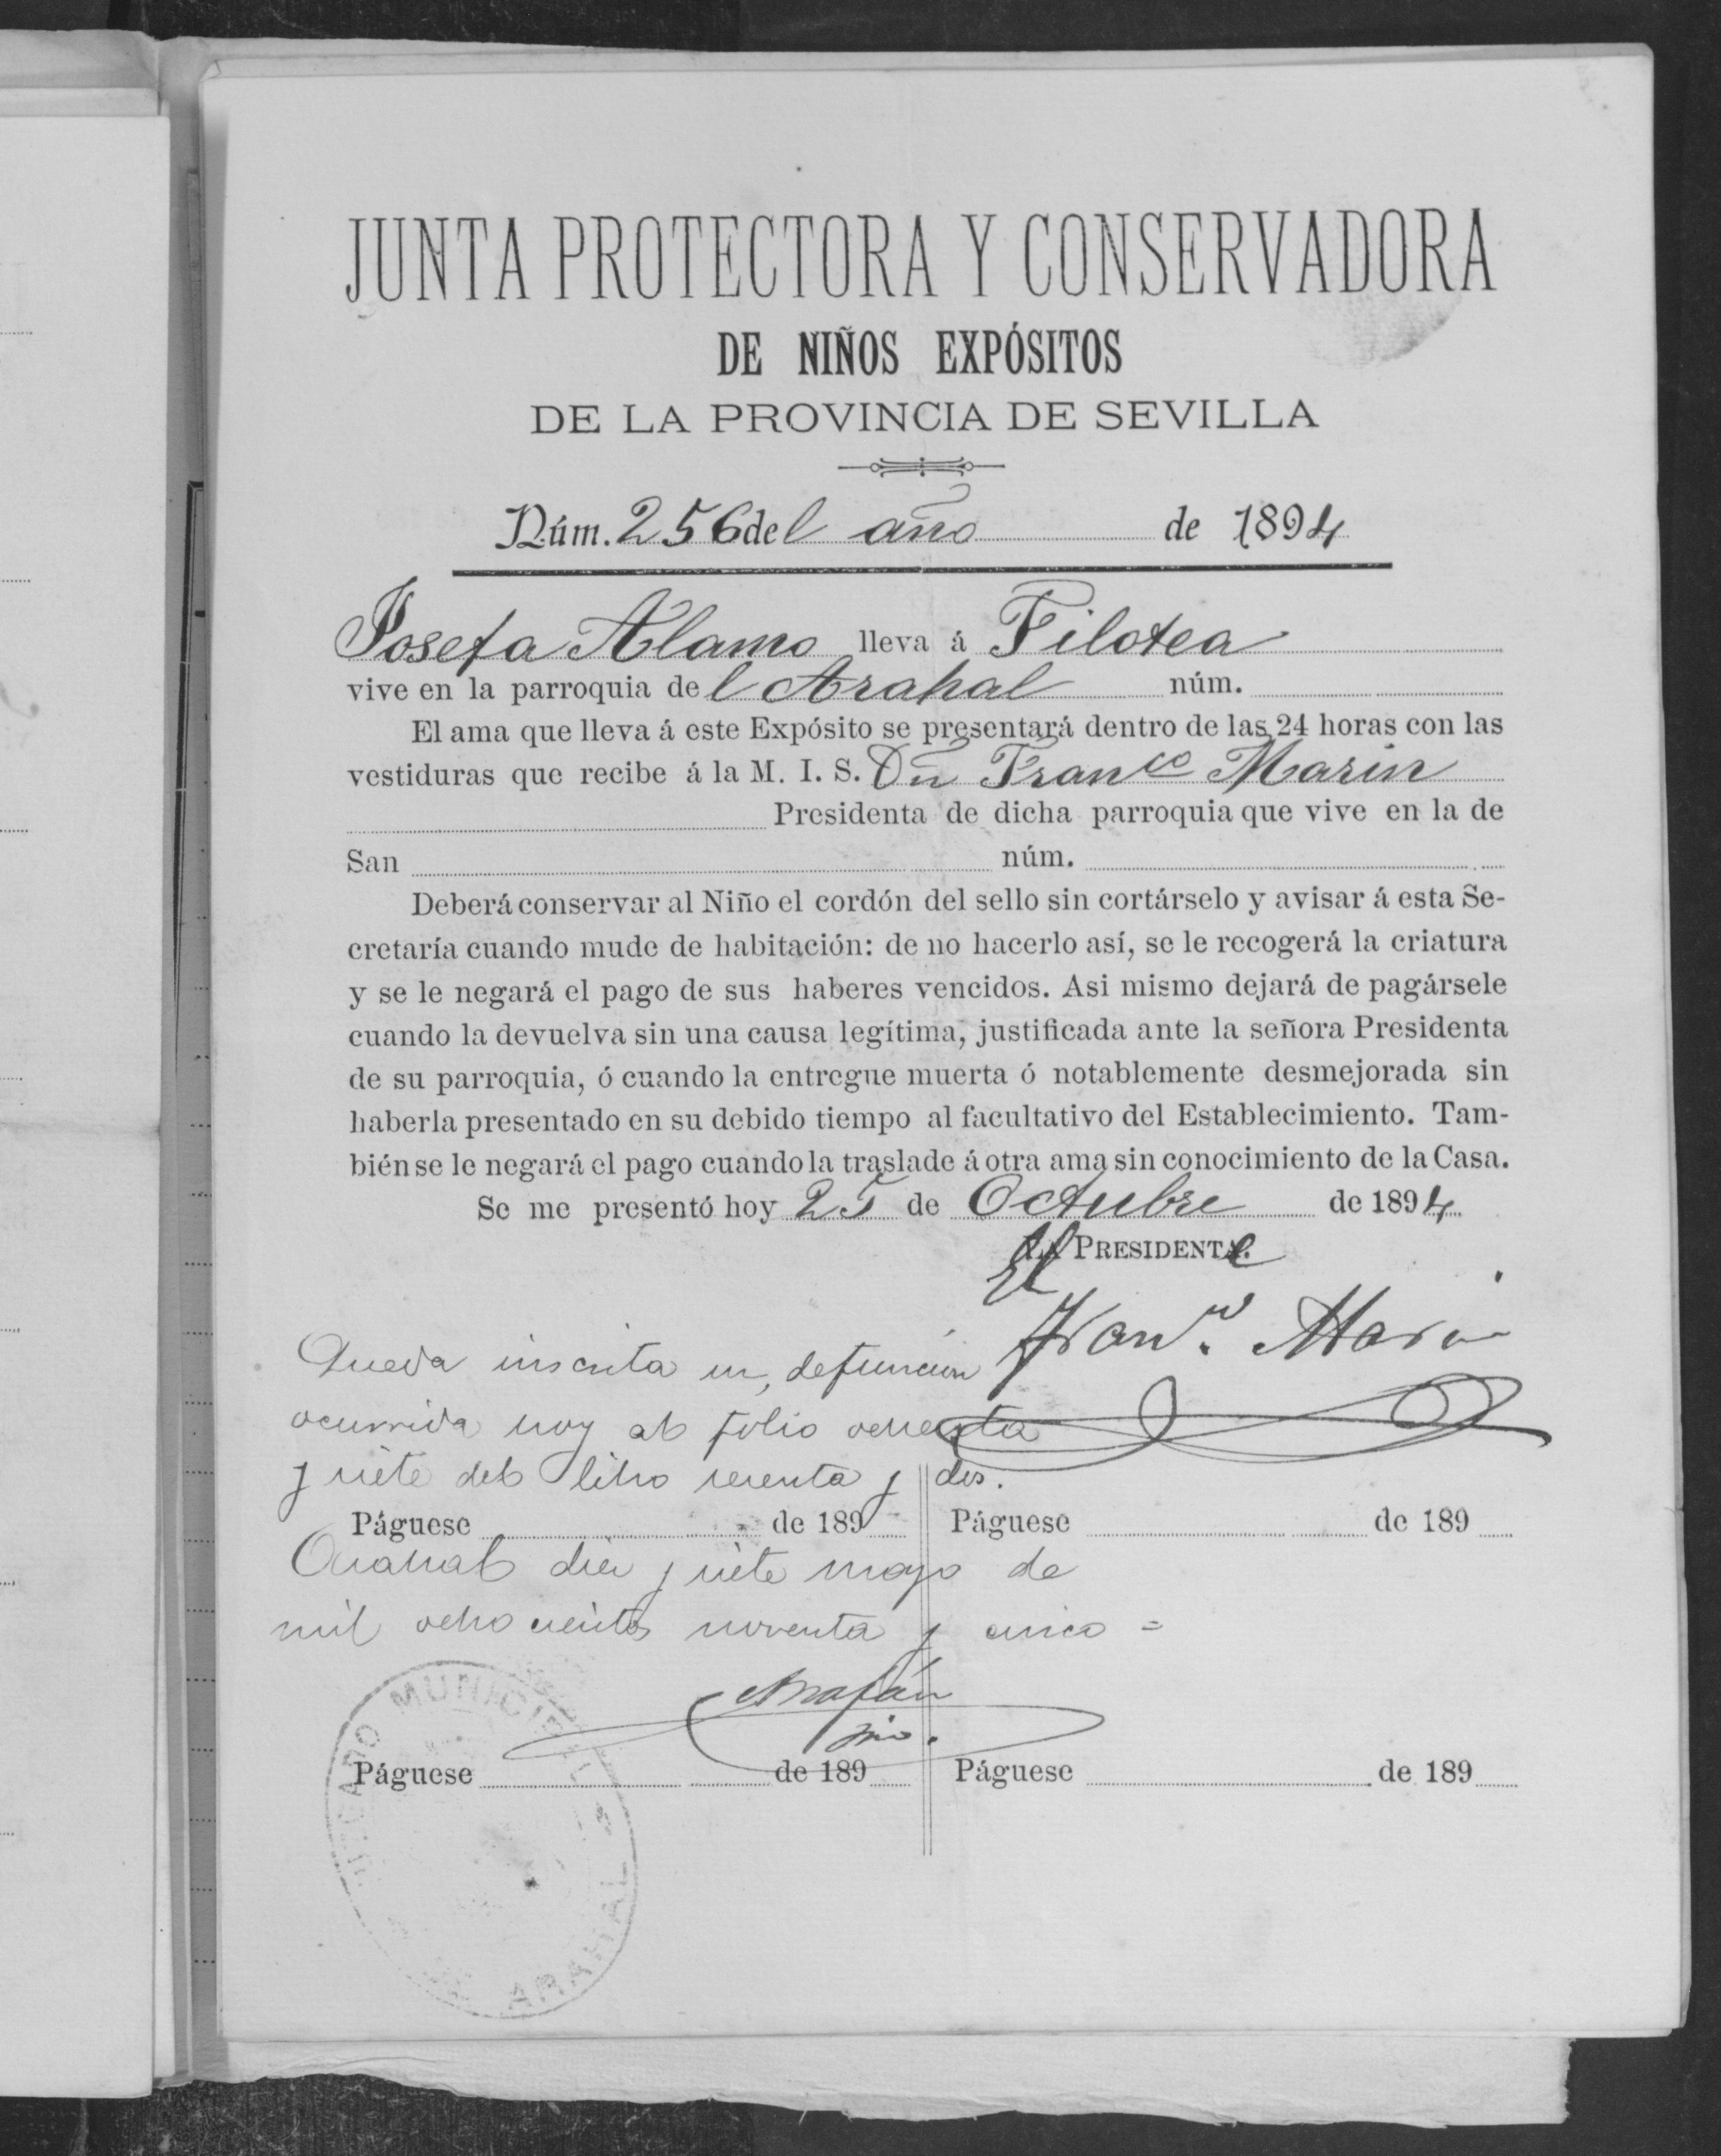 JUNTA PROTECTORA Y CONSERVADORA
DE NIÑOS EXPÓSITOS
DE LA PROVINCIA DE SEVILLA
Núm. 256 del año de 1894
Josefa Alamo lleva á Filotea
vive en la parroquia del Arahal núm.
El ama que lleva á este Expósito se presentará dentro de las 24 horas con las
vestiduras que recibe á la M. I. S. Dn Franco Marin
Presidenta de dicha parroquia que vive en la de
San núm.
Deberá conservar al Niño el cordón del sello sin cortárselo y avisar á esta Se-
cretaría cuando mude de habitación: de no hacerlo así, se le recogerá la criatura
y se le negará el pago de sus haberes vencidos. Asi mismo dejará de pagársele
cuando la devuelva sin una causa legítima, justificada ante la señora Presidenta
de su parroquia, ó cuando la entregue muerta ó notablemente desmejorada sin
haberla presentado en su debido tiempo al facultativo del Establecimiento. Tam-
bién se le negará el pago cuando la traslade á otra ama sin conocimiento de la Casa.
Se me presentó hoy 25 de Octubre de 1894
El PRESIDENTe
Franco Marin
Queda inscrita su defunción
ocurrida hoy al folio ochenta
y siete del libro sesenta y dos.
Páguese de 189 Páguese de 189
Arahal diez y siete mayo de
mil ochocientos noventa y cinco =
Páguese de 189 Páguese de 189
JUZGADO MUNICIPAL
ARAHAL